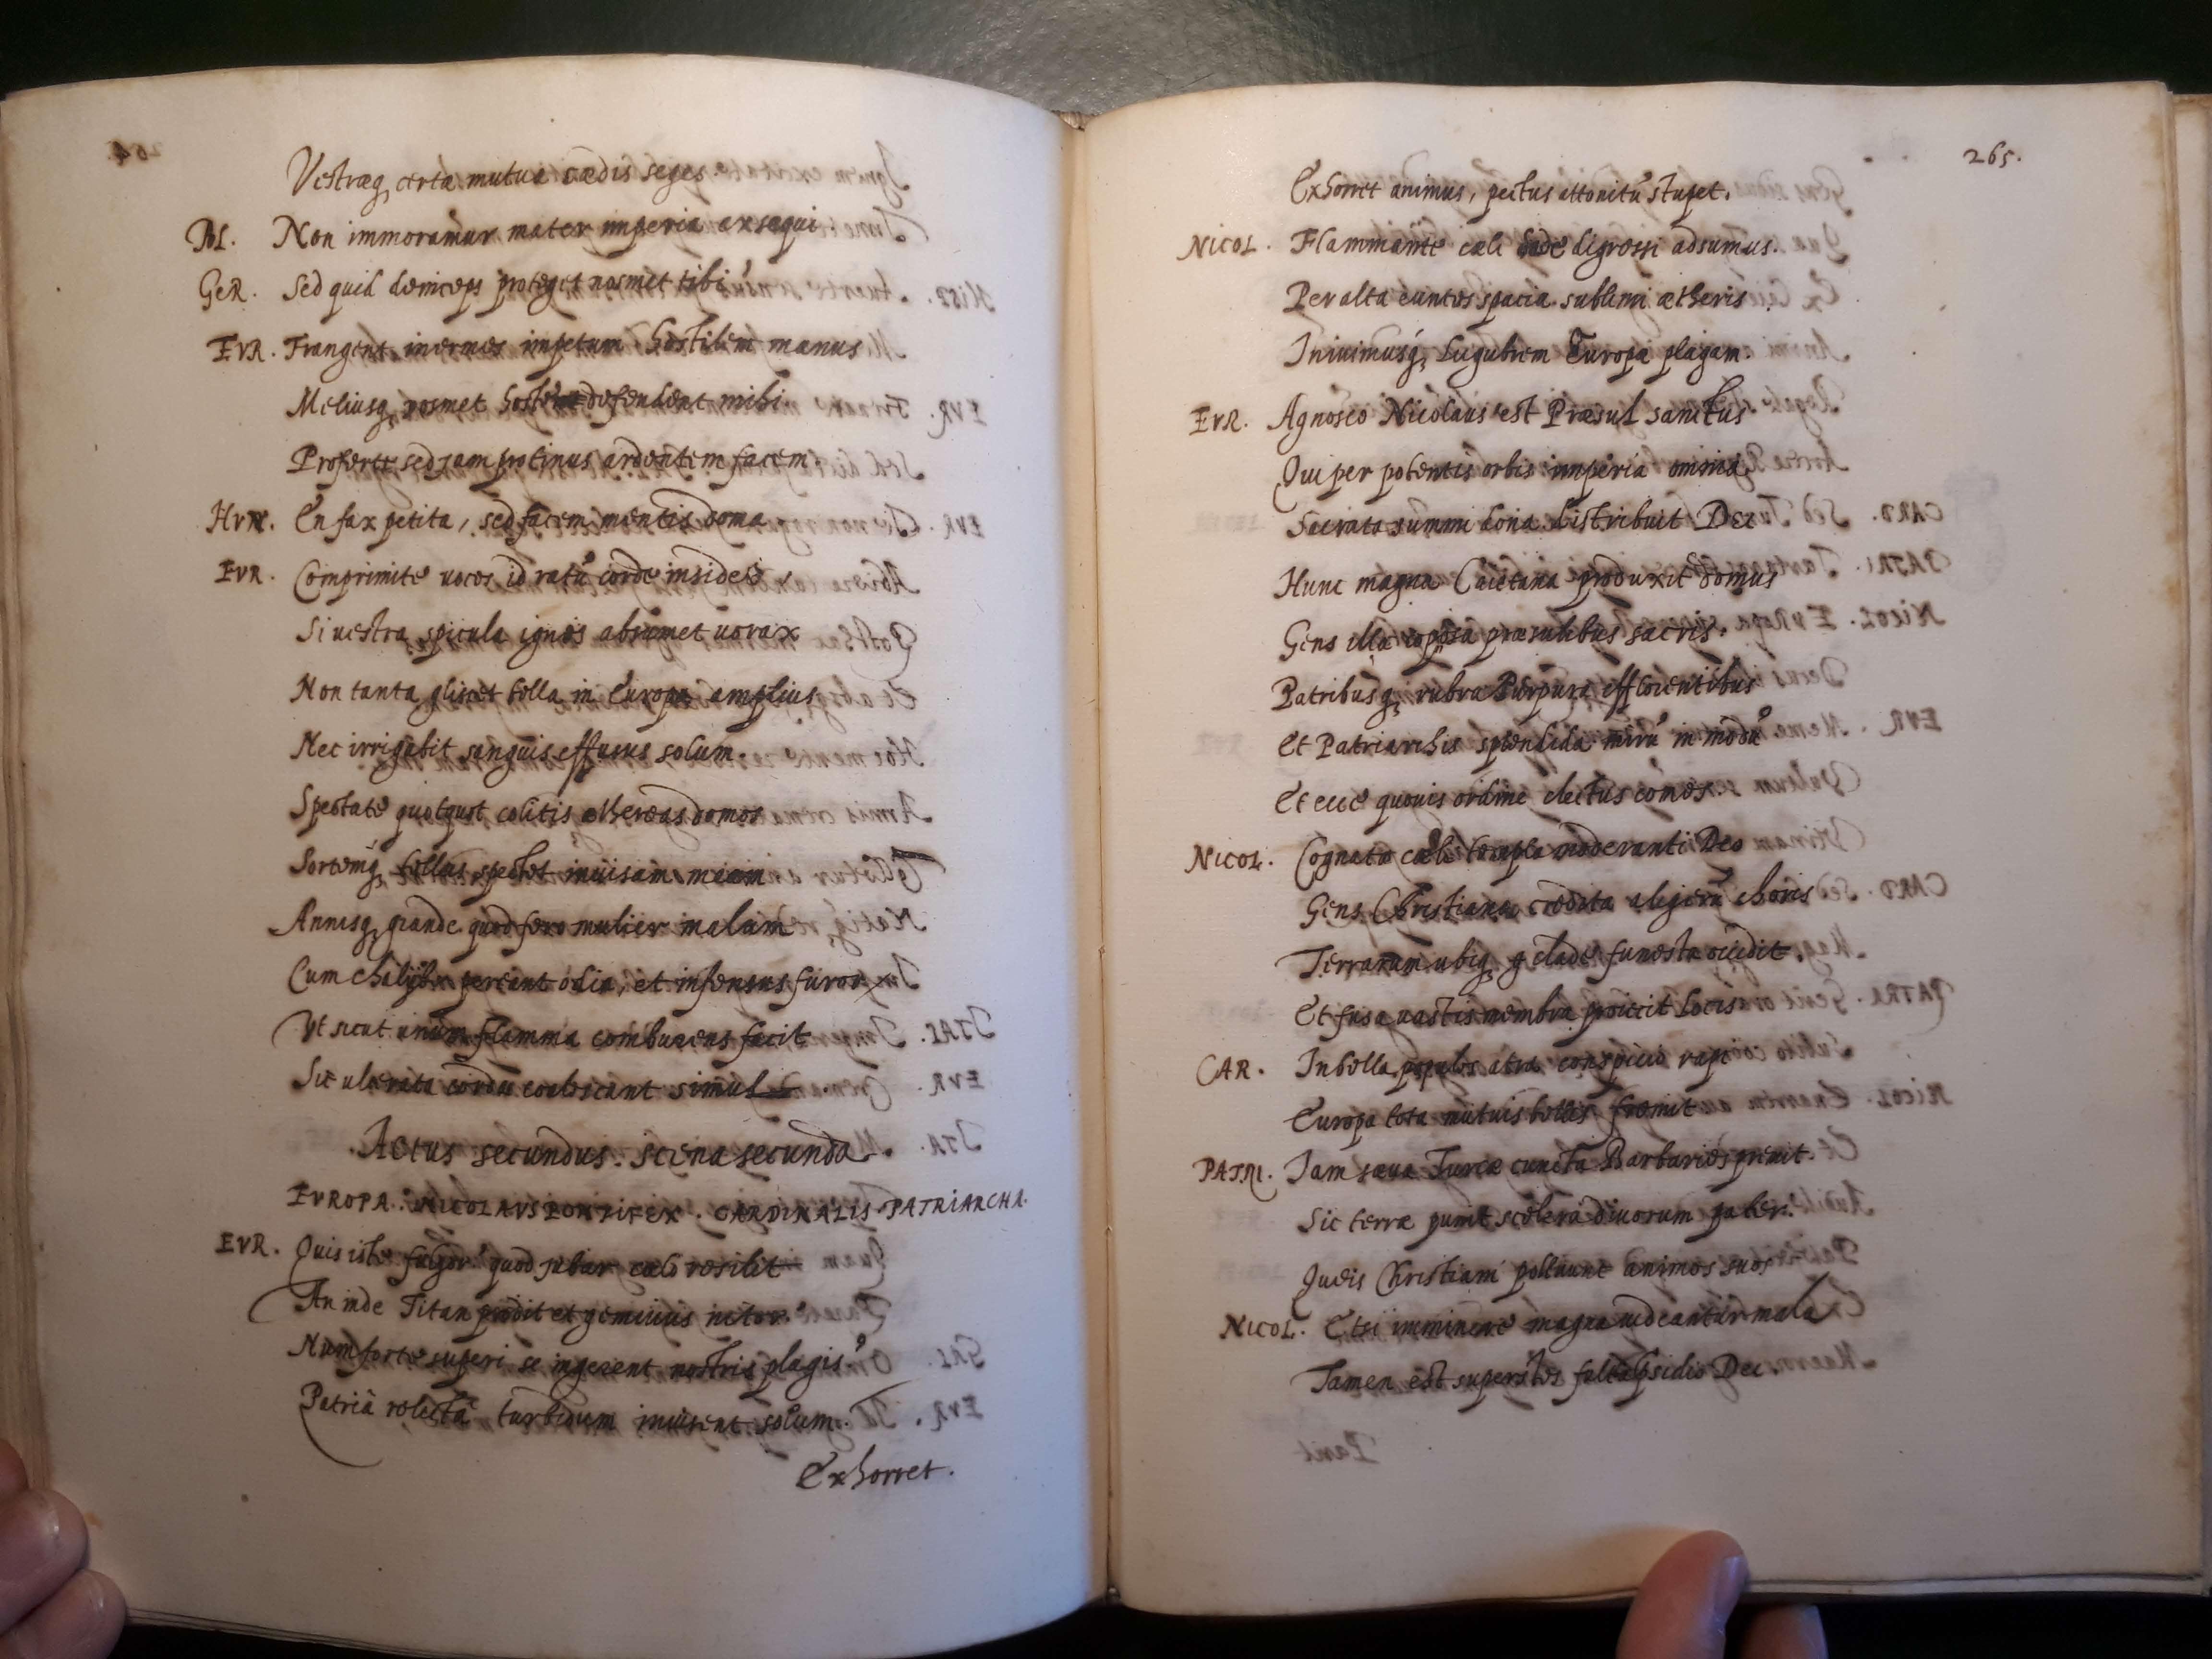 Vestræq, certæ mutuæ cædis seges.
Pol. Non immoramur mater imperia exsequi
GeR. Sed quid deinceps proteget nosmet tibi
EVR. Frangent inermes impetum hostilem manus
Meliusq, nosmet defendent mihi
Proferte sed jam protinus ardentem facem
HVN. En fax petita, sed facem mentis doma
EVR. Comprimite voces id ratũ corde insidet
Si vestra spicula ignis absumet vorax
Non tanta gliscet bella in Europa amplius
Nec irrigabit sanguis effusus solum.
Spectate quotquot colitis æthereas domos
Sortemq, tellus spectet invisam meam
Annisq, grande quod fero mulier malum
Cum chalybe pereant odia, et infensus furor
Vt sicut unum flamma comburens facit
Sic ulcerata corda coalescant simul
Actus secundus. Scena secunda.
EVROPA. NICOLAVS PONTIFEX. CARDINALIS. PATRIARCHA.
EVR. Quis iste fulgor? quod jubar cæli resilit
An inde Titan prodit et geminus nitor?
Num forte superi se ingerent nostris plagis?
Patriâ relictâ turbidum invisent solum.
Exhorret.
265.
Exhorret animus, pectus attonitũ stupet.
NICOL. Flammante cæli sede digressi adsumus.
Per alta euntes spacia sublimi ætheris
Inivimusq, lugubrem Europæ plagam.
EVR. Agnosco Nicolaus est Præsul sanctus
Qui per potentis orbis imperia omnia
Sacrata summi dona distribuit Dei
Hunc magna Caietana produxit domus
Gens illa copiosa præsulibus sacris.
Patribusq, rubra Purpura efflorentibus
Et Patriarchis splendida mirũ in modũ
Et ecce quovis ordine electus comes.
NICOL. Cognata cæli templa moderanti Deo
Gens Christiana credita aligerũ choris
Terrarum ubiq, clade funesta occidit.
Et fusa vastis membra projicit locis
CAR. In bella populos atra conspicio rapi
Europa tota mutuis bellis fremit
PATRI. Jam sæva Turcæ cuncta Barbaries premit.
Sic terræ punit scelera divorum pater.
Queis Christiani polluunt animos suos
NICOL. Etsi imminere magna videantur mala
Tamen est superstes Dei.